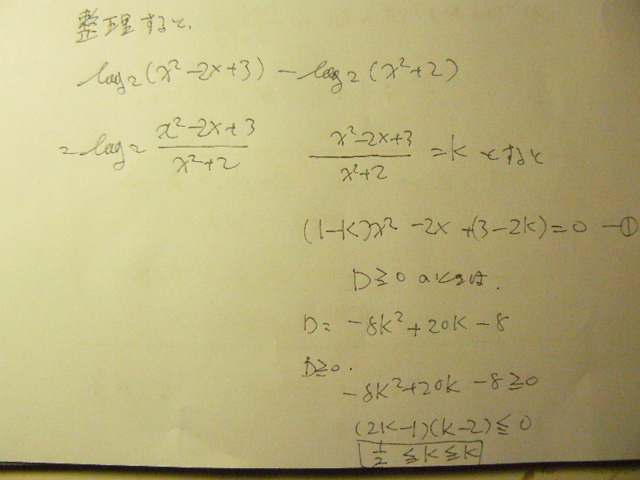 整理すると、
log₂(x²-2x+3) - log₂(x²+2)
= log₂ (x²-2x+3)/(x²+2)   (x²-2x+3)/(x²+2) = k とすると
(1-k)x² - 2x + (3-2k) = 0 ―①
D≧0 のときは、
D = -8k²+20k-8
D≧0.
-8k²+20k-8≧0
(2k-1)(k-2)≦0
1/2 ≦k≦k